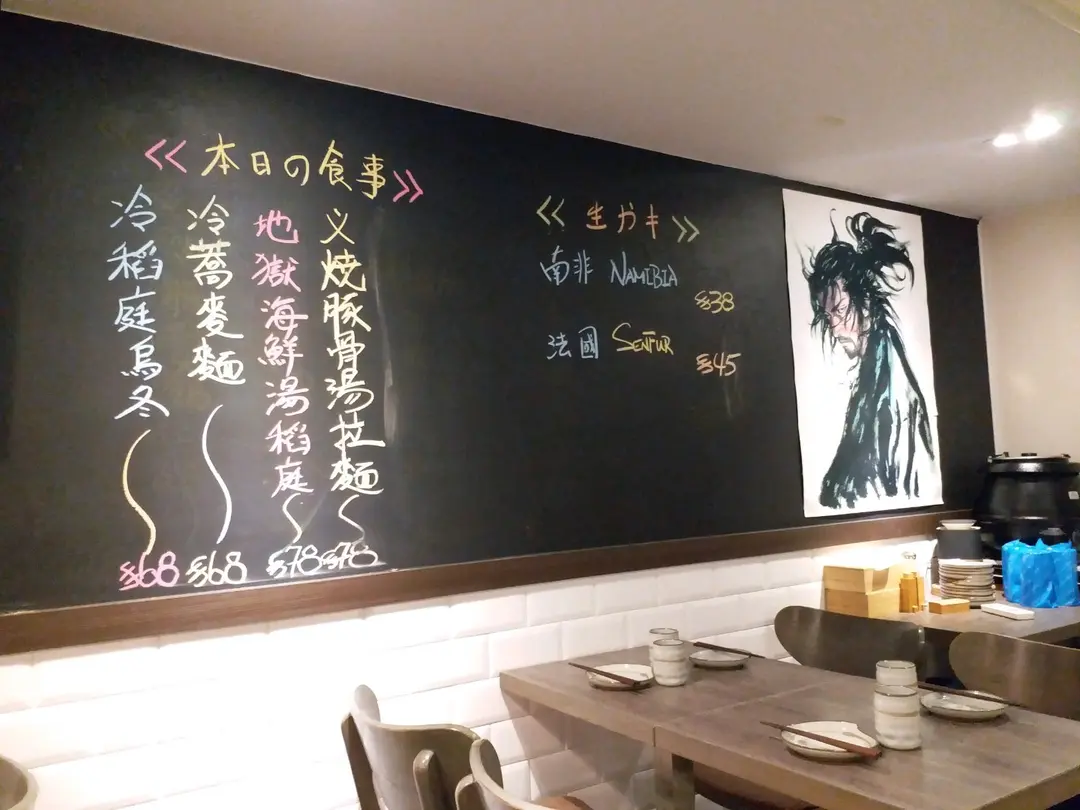 <<本日の食事>>
义焼豚骨湯拉麵 $78
地獄海鮮湯稻庭 $78
冷蕎麥麵 $68
冷稻庭烏冬 $68
<<生カキ>>
南非 NAMIBIA
$38
法國 SENFUR
$45